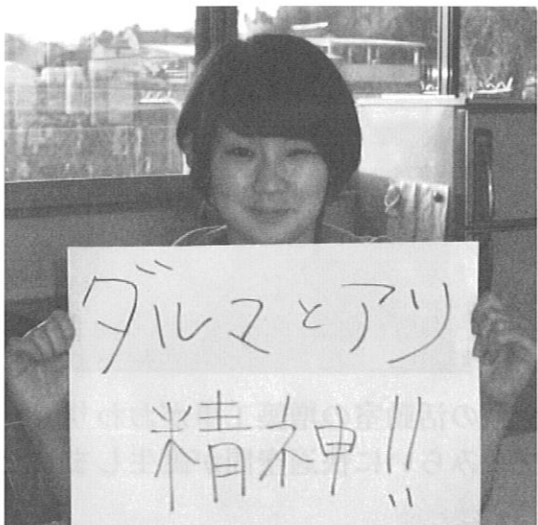 ダルマとアリ
精神!!